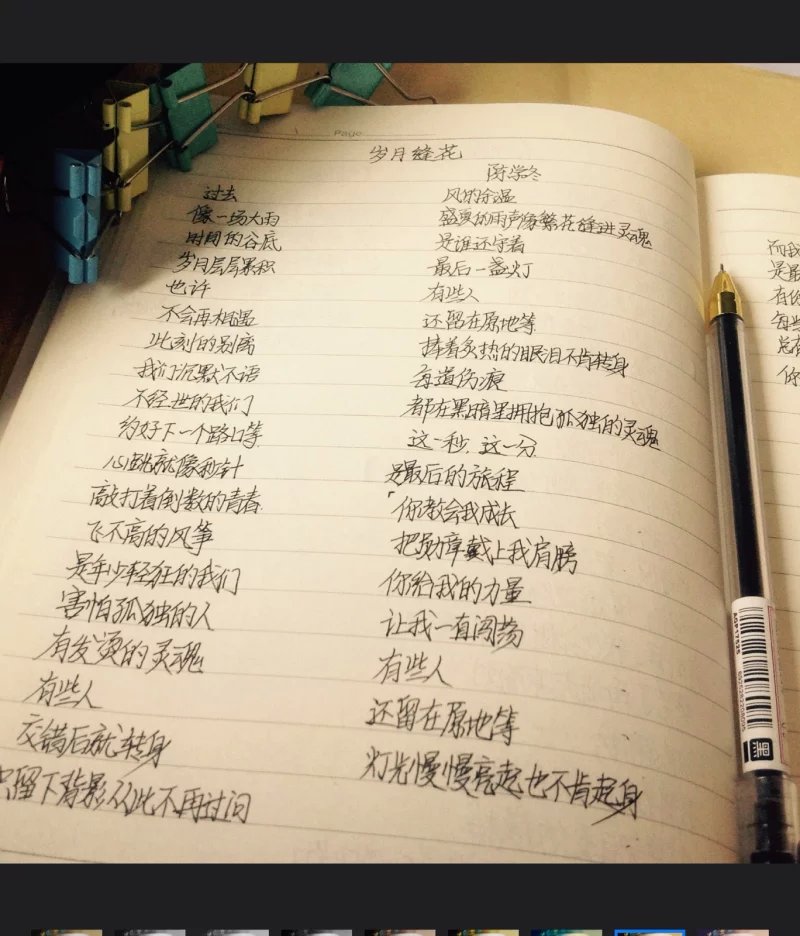 Page
岁月缝花
陈学冬
过去
像一场大雨
时间的谷底
岁月层层累积
也许
不会再相遇
此刻的别离
我们沉默不语
不经世的我们
约好下一个路口等
心跳就像秒针
敲打着倒数的青春
飞不高的风筝
是年少轻狂的我们
害怕孤独的人
有发烫的灵魂
有些人
交错后就转身
只留下背影从此不再过问
风的余温
盛夏的雨声像繁花缝进灵魂
是谁还守着
最后一盏灯
有些人
还留在原地等
捧着炙热的眼泪不肯转身
每道伤痕
都在黑暗里拥抱孤独的灵魂
这一秒.这一分
是最后的旅程
「你教会我成长
把勋章戴上我肩膀
你给我的力量
让我一直闯荡
有些人
还留在原地等
灯光慢慢亮起也不肯起身
而我
是最
有你
每些
总有
你
AGP17825
黑